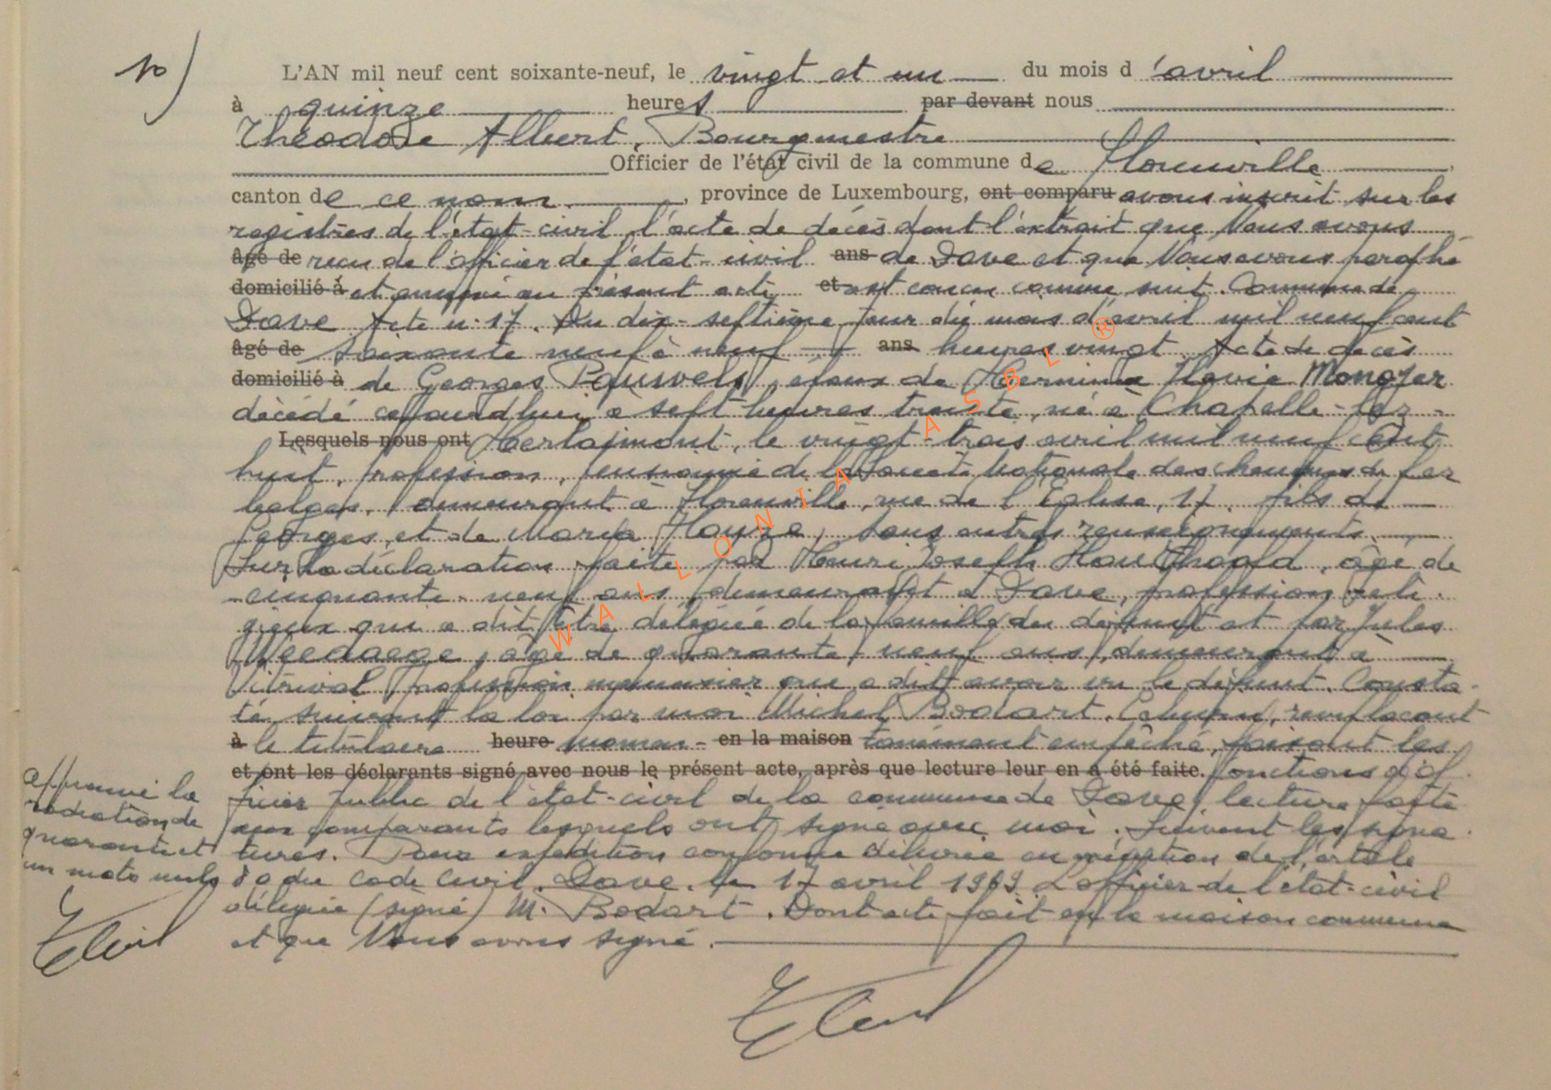 10)
L'AN mil neuf cent soixante-neuf, le vingt et un du mois d'avril
à quinze heures par devant nous
Théodore Albert, Bourgmestre
Officier de l'état civil de la commune de Florenville
canton de ce nom, province de Luxembourg, ont comparu avons inscrit sur les
registres de l'état-civil, l'acte de décès dont l'extrait que Nous avons
âgé de recu de l'officier de l'état-civil ans de Dave et que Nous avons paraphé
domicilié à et annexé au présent acte et est concu comme suit. Commune de
Dave Acte n° 17. Du dix-septième jour du mois d'avril mil neuf cent
âgé de soixante neuf à neuf ans heures vingt. Acte de décès
domicilié à de Georges Pauwels, époux de Herminia Flavie Monoyer
décédé cejourd'hui à sept heures trente, né à Chapelle-lez-
Lesquels nous ont Herlaimont, le vingt-trois avril mil neuf cent
huit, profession, pensionné de la Société Nationale des chemins de fer
belges, demeurant à Florenville, rue de l'Eglise, 17, fils de
Georges, et de Maria Houze, sans autres renseignements.
Sur la déclaration faite par Henri Joseph, âgé de
cinquante-neuf ans, demeurant à Dave, profession reli-
gieux qui a dit être délégué de la famille du défunt et par Jules
âgé de quarante neuf ans, demeurant à
Vitrival profession menuisier qui a dit avoir vu le défunt. Consta-
té suivant la loi par moi Michel Bodart, Echevin, remplaçant
à le titulaire heure momen- en la maison tanément empêché, faisant les
et ont les déclarants signé avec nous le présent acte, après que lecture leur en a été faite. fonctions d'of-
ficier public de l'état-civil de la commune de Dave, lecture faite
aux comparants lesquels ont signé avec moi. Suivent les signa-
tures. Pour expédition conforme délivrée en exécution de l'article
80 du code civil. Dave, le 17 avril 1969 L'officier de l'état-civil
délégué (signé) M. Bodart. Dont acte fait en la maison commune
et que Nous avons signé.
approuvé la
radiation de
quarante et
un mots nuls
WALLONIA ASBL ®